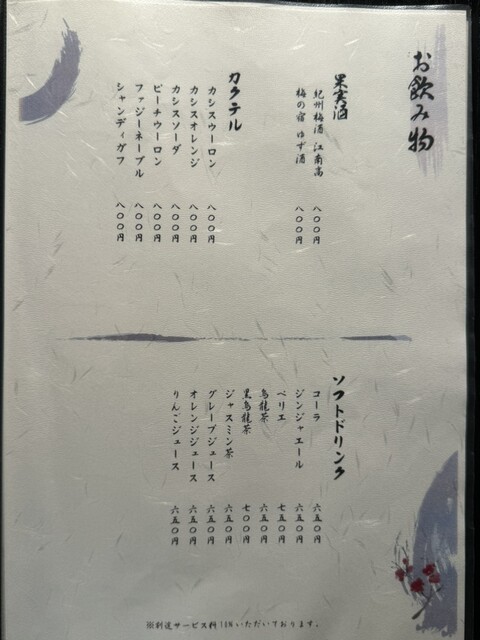 お飲み物
果実酒
紀州梅酒 江南高 八〇〇円
梅の宿 ゆず酒 八〇〇円
カクテル
カシスウーロン 八〇〇円
カシスオレンジ 八〇〇円
カシスソーダ 八〇〇円
ピーチウーロン 八〇〇円
ファジーネーブル 八〇〇円
シャンディガフ 八〇〇円
ソフトドリンク
コーラ 六五〇円
ジンジャエール 六五〇円
ペリエ 七五〇円
烏龍茶 六五〇円
黒烏龍茶 七〇〇円
ジャスミン茶 六五〇円
グレープジュース 六五〇円
オレンジジュース 六五〇円
りんごジュース 六五〇円
※別途サービス料10%いただいております。